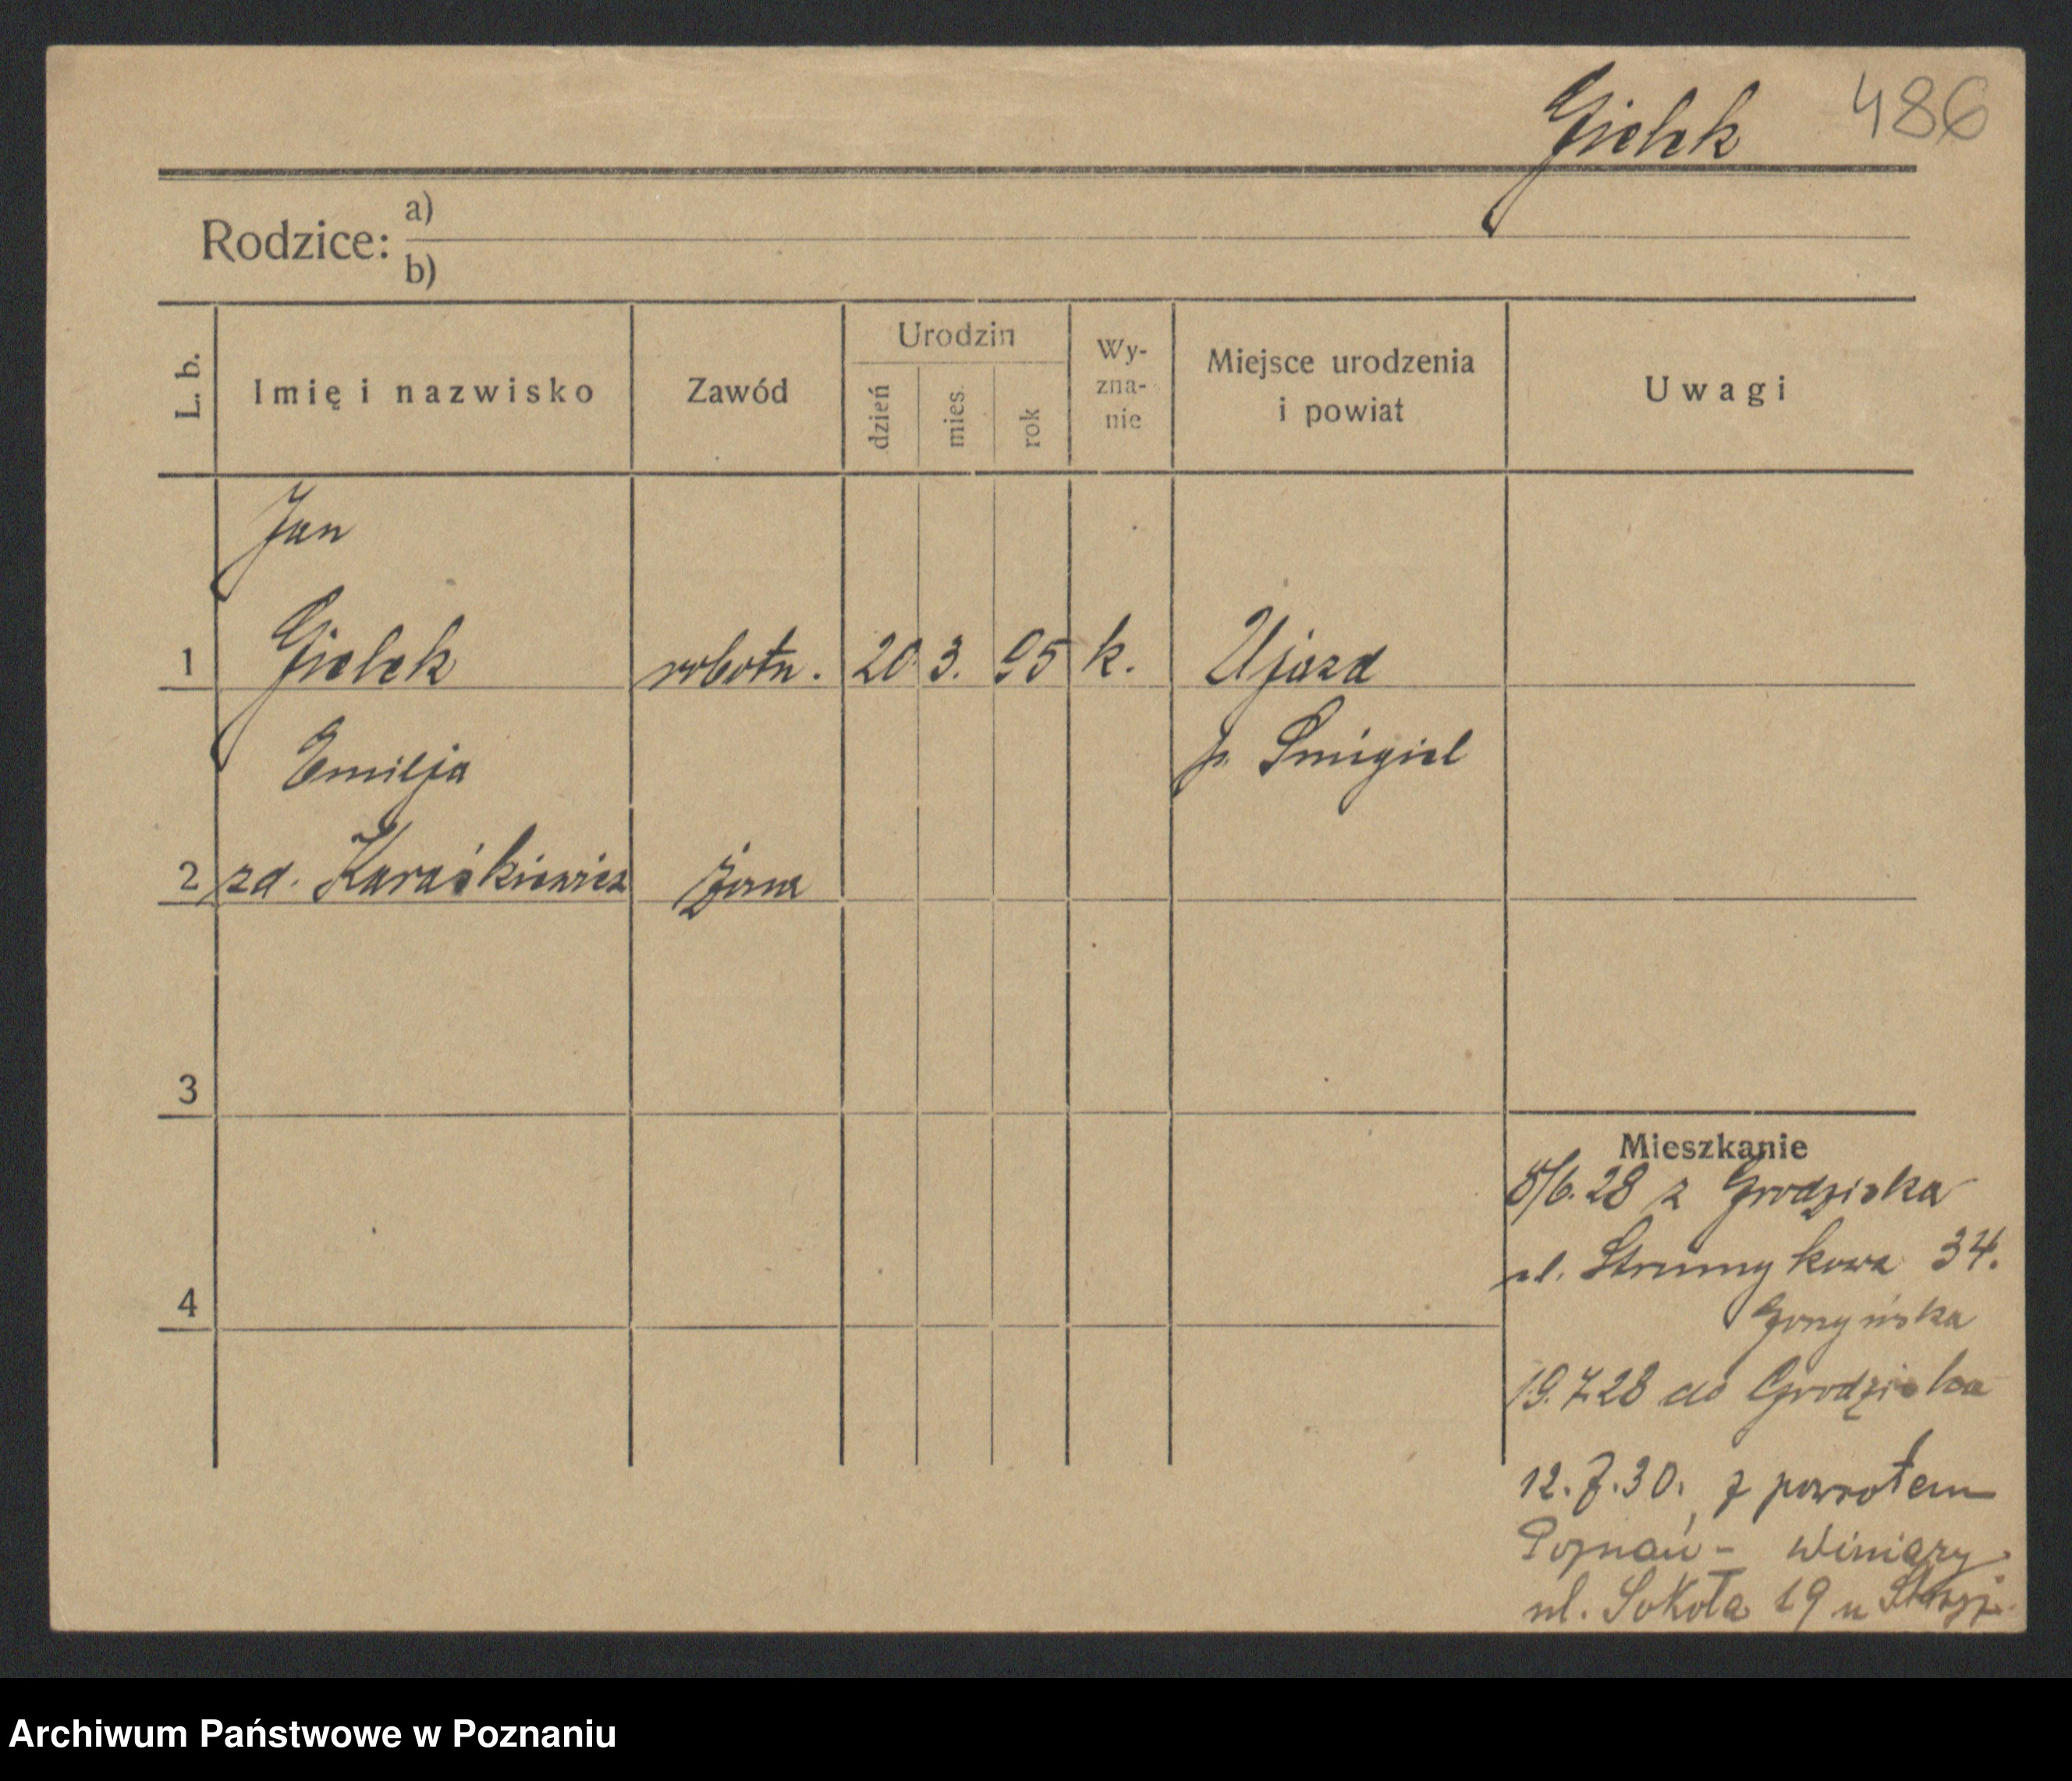 Gielek 486
Rodzice: a)
b)
L. b. Imię i nazwisko Zawód Urodzin dzień mies. rok Wy-zna-nie Miejsce urodzenia i powiat Uwagi
Jan
1 Gielek robotn. 20. 3. 95 k. Ujazd
Emilja p. Śmigiel
2 zd. Karaśkiewicz żona
3
Mieszkanie
5/6.28 z Grodziska
ul. Strumykowa 34.
4
19.7.28 do Grodziska
12.7.30. z powrotem
Poznań - Winiary
ul. Sokoła 19 u
Archiwum Państwowe w Poznaniu